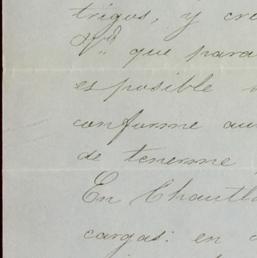 trigos, y cre
Vd. que para
es posible
conforme au
de tenerme
En Chautla
cargas: en